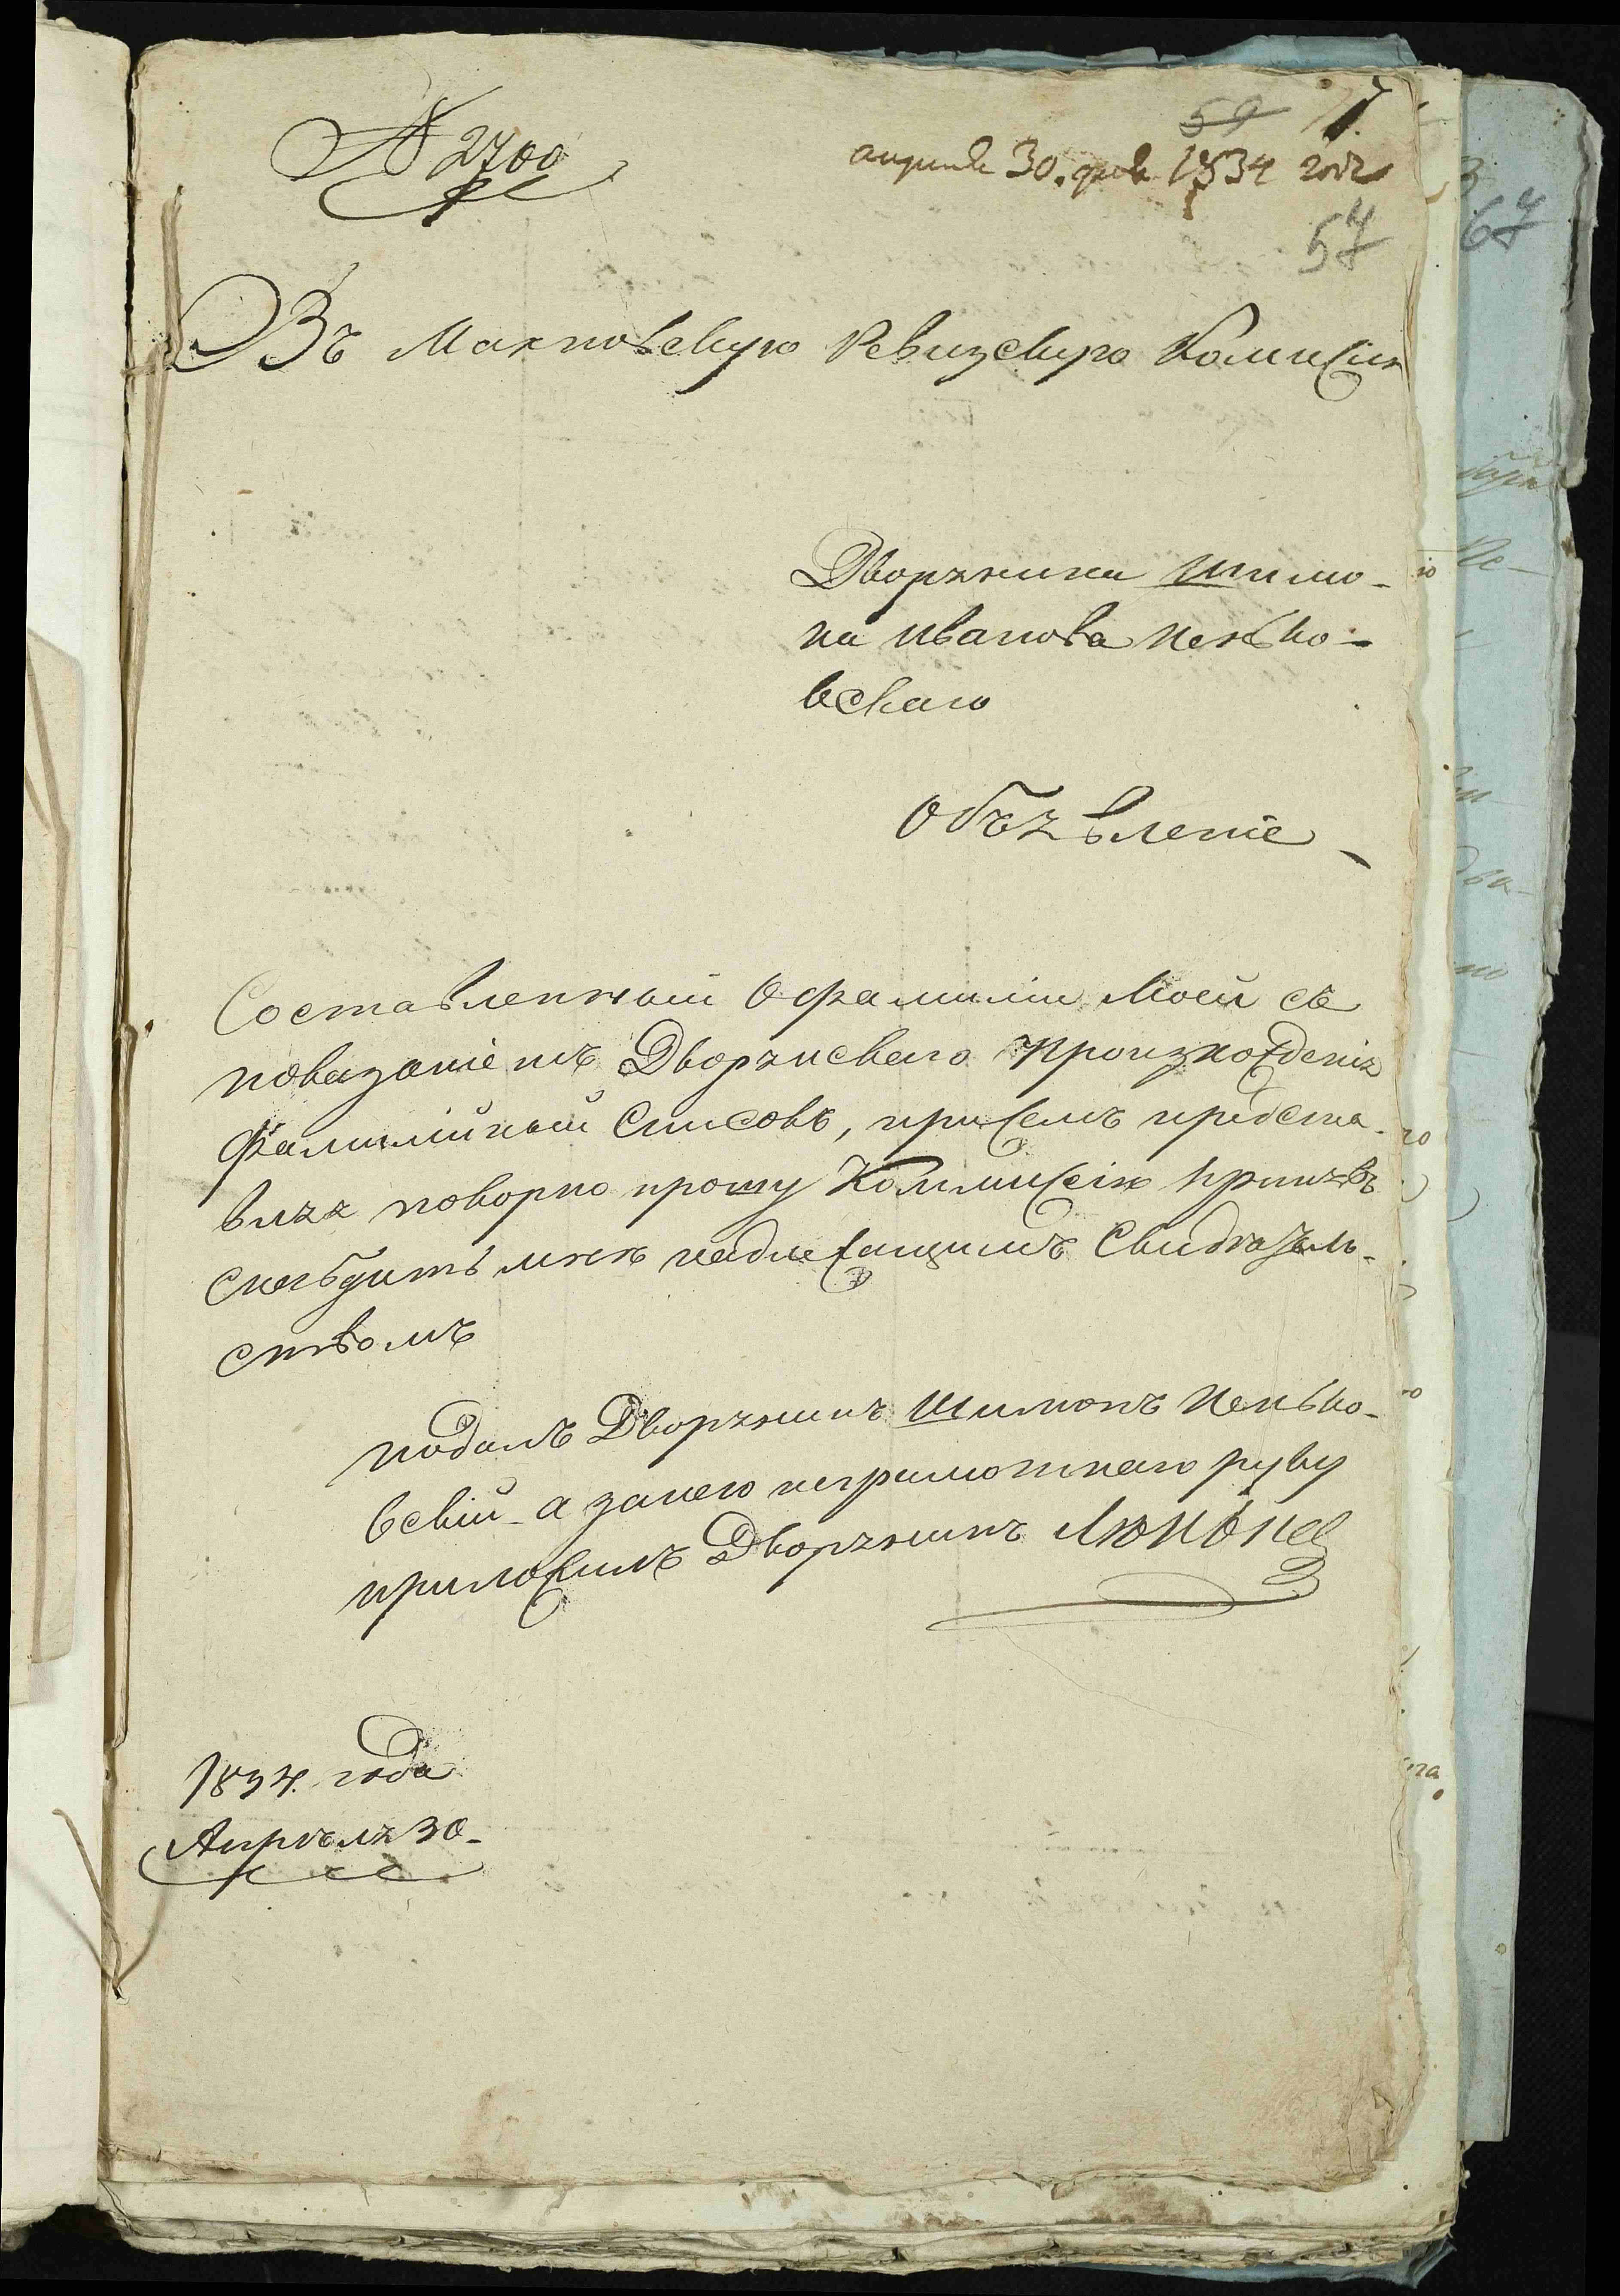 № 2700
59
априля 30. дня 1834 года
57
67
Въ Махновскую Ревизскую Комисію
Дворянина Шимо-
на Иванова Пенько-
вскаго
Объявленіе
Составленный О фамиліи Моей съ
показаніемъ Дворянскаго произхожденія
Фамилійный Списокъ, при семъ предста-
вляя покорно прошу Коммисію принявъ
снабдить меня надлежащимъ Свидѣтель-
ствомъ
подалъ Дворянинъ Шимонъ Пенько-
вскій а за него неграмотнаго руку
приложилъ Дворянинъ
1834. года
Апрѣля 30